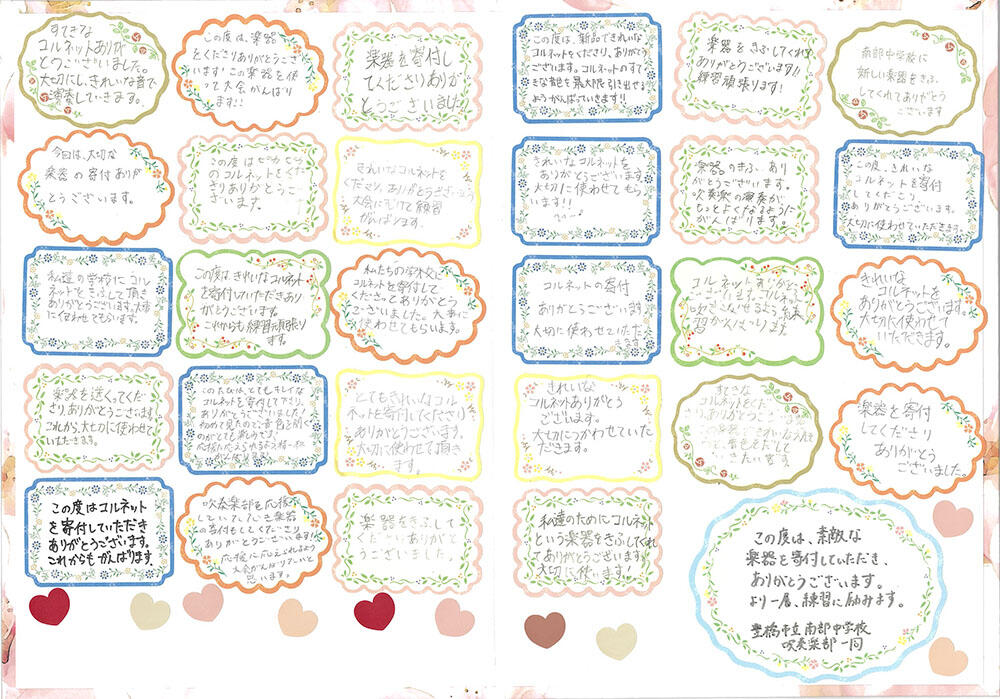 すてきな
コルネットありが
とうございました。
大切にし、きれいな音で
演奏していきます。
この度は、楽器
をくださりありがとうござ
います!この楽器を使
って大会がんばり
ます!!
楽器を寄付し
てくださりありが
とうございました!!
今回は、大切な
楽器の寄付ありが
とうございます。
この度は
のコルネットをくだ
さりありがとうご
ざいます。
きれいなコルネットを
くださり、ありがとうございます
大会にむけて練習
がんばります
私達の学校にコル
ネットをきふして頂き
ありがとうございます。大切
に使わせてもらいます。
この度は、きれいなコルネット
を寄付していただきあり
がとうございます。
これからも練習頑張り
ます。
私たちの学校に
コルネットを寄付して
くださってありがとう
ございました。大事に
使わせてもらいます。
楽器を送ってくだ
さり、ありがとうございます。
これから、大切に使わせて
いただきます。
このたびは、とてもキレイな
コルネットを寄付して下さり、
ありがとうございました!
初めて見たので、音色を聞く
のがとても楽しみです。
とてもきれいなコル
ネットを寄付してくださり
ありがとうございます。
大切に使わせて頂き
ます。
この度はコルネット
を寄付していただき
ありがとうございます。
これからもがんばります。
吹奏楽部を応援
していただき楽器
の寄付もしてくださり
ありがとうございます!
応援に応えられるよう
大会がんばりたいと
思います。
楽器をきふして
くださりありがと
うございました。
この度は、新品できれいな
コルネットをくださり、ありがとう
ございます。コルネットのすて
きな音色を最大限引き出せる
ようがんばっていきます!!
楽器をきふしてくれて
ありがとうございます!!
練習頑張ります!
南部中学校に
新しい楽器をきふ
してくれてありがとう
ございます
きれいなコルネットを
ありがとうございます。
大切に使わせてもら
います!!
楽器のきふ、あり
がとうございます。
吹奏楽の演奏が
もっとよくなるように
がんばります。
この度、きれいな
コルネットを寄付
してくださり
ありがとうございます。
大切に使わせていただきます。
コルネットの寄付
ありがとうございます
大切に使わせていただ
きます
コルネットありがとう
ございます。コルネット
吹きこなせるよう練習
きれいな
コルネットを
ありがとうございます。
大切に使わせて
いただきます。
きれいな
コルネットありがとう
ございます。
大切につかわせていた
だきます。
すてきな
コルネットをくださ
り、ありがとうござ
楽器を寄付
してくださり
ありがとう
ございました。
私達のためにコルネット
という楽器をきふしてくれ
てありがとうございます。
大切に使います!
この度は、素敵な
楽器を寄付していただき、
ありがとうございます。
より一層、練習に励みます。
豊橋市立南部中学校
吹奏楽部一同